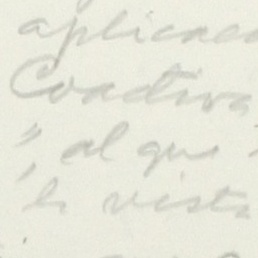 aplicac
Coactiva
", al que
la vista